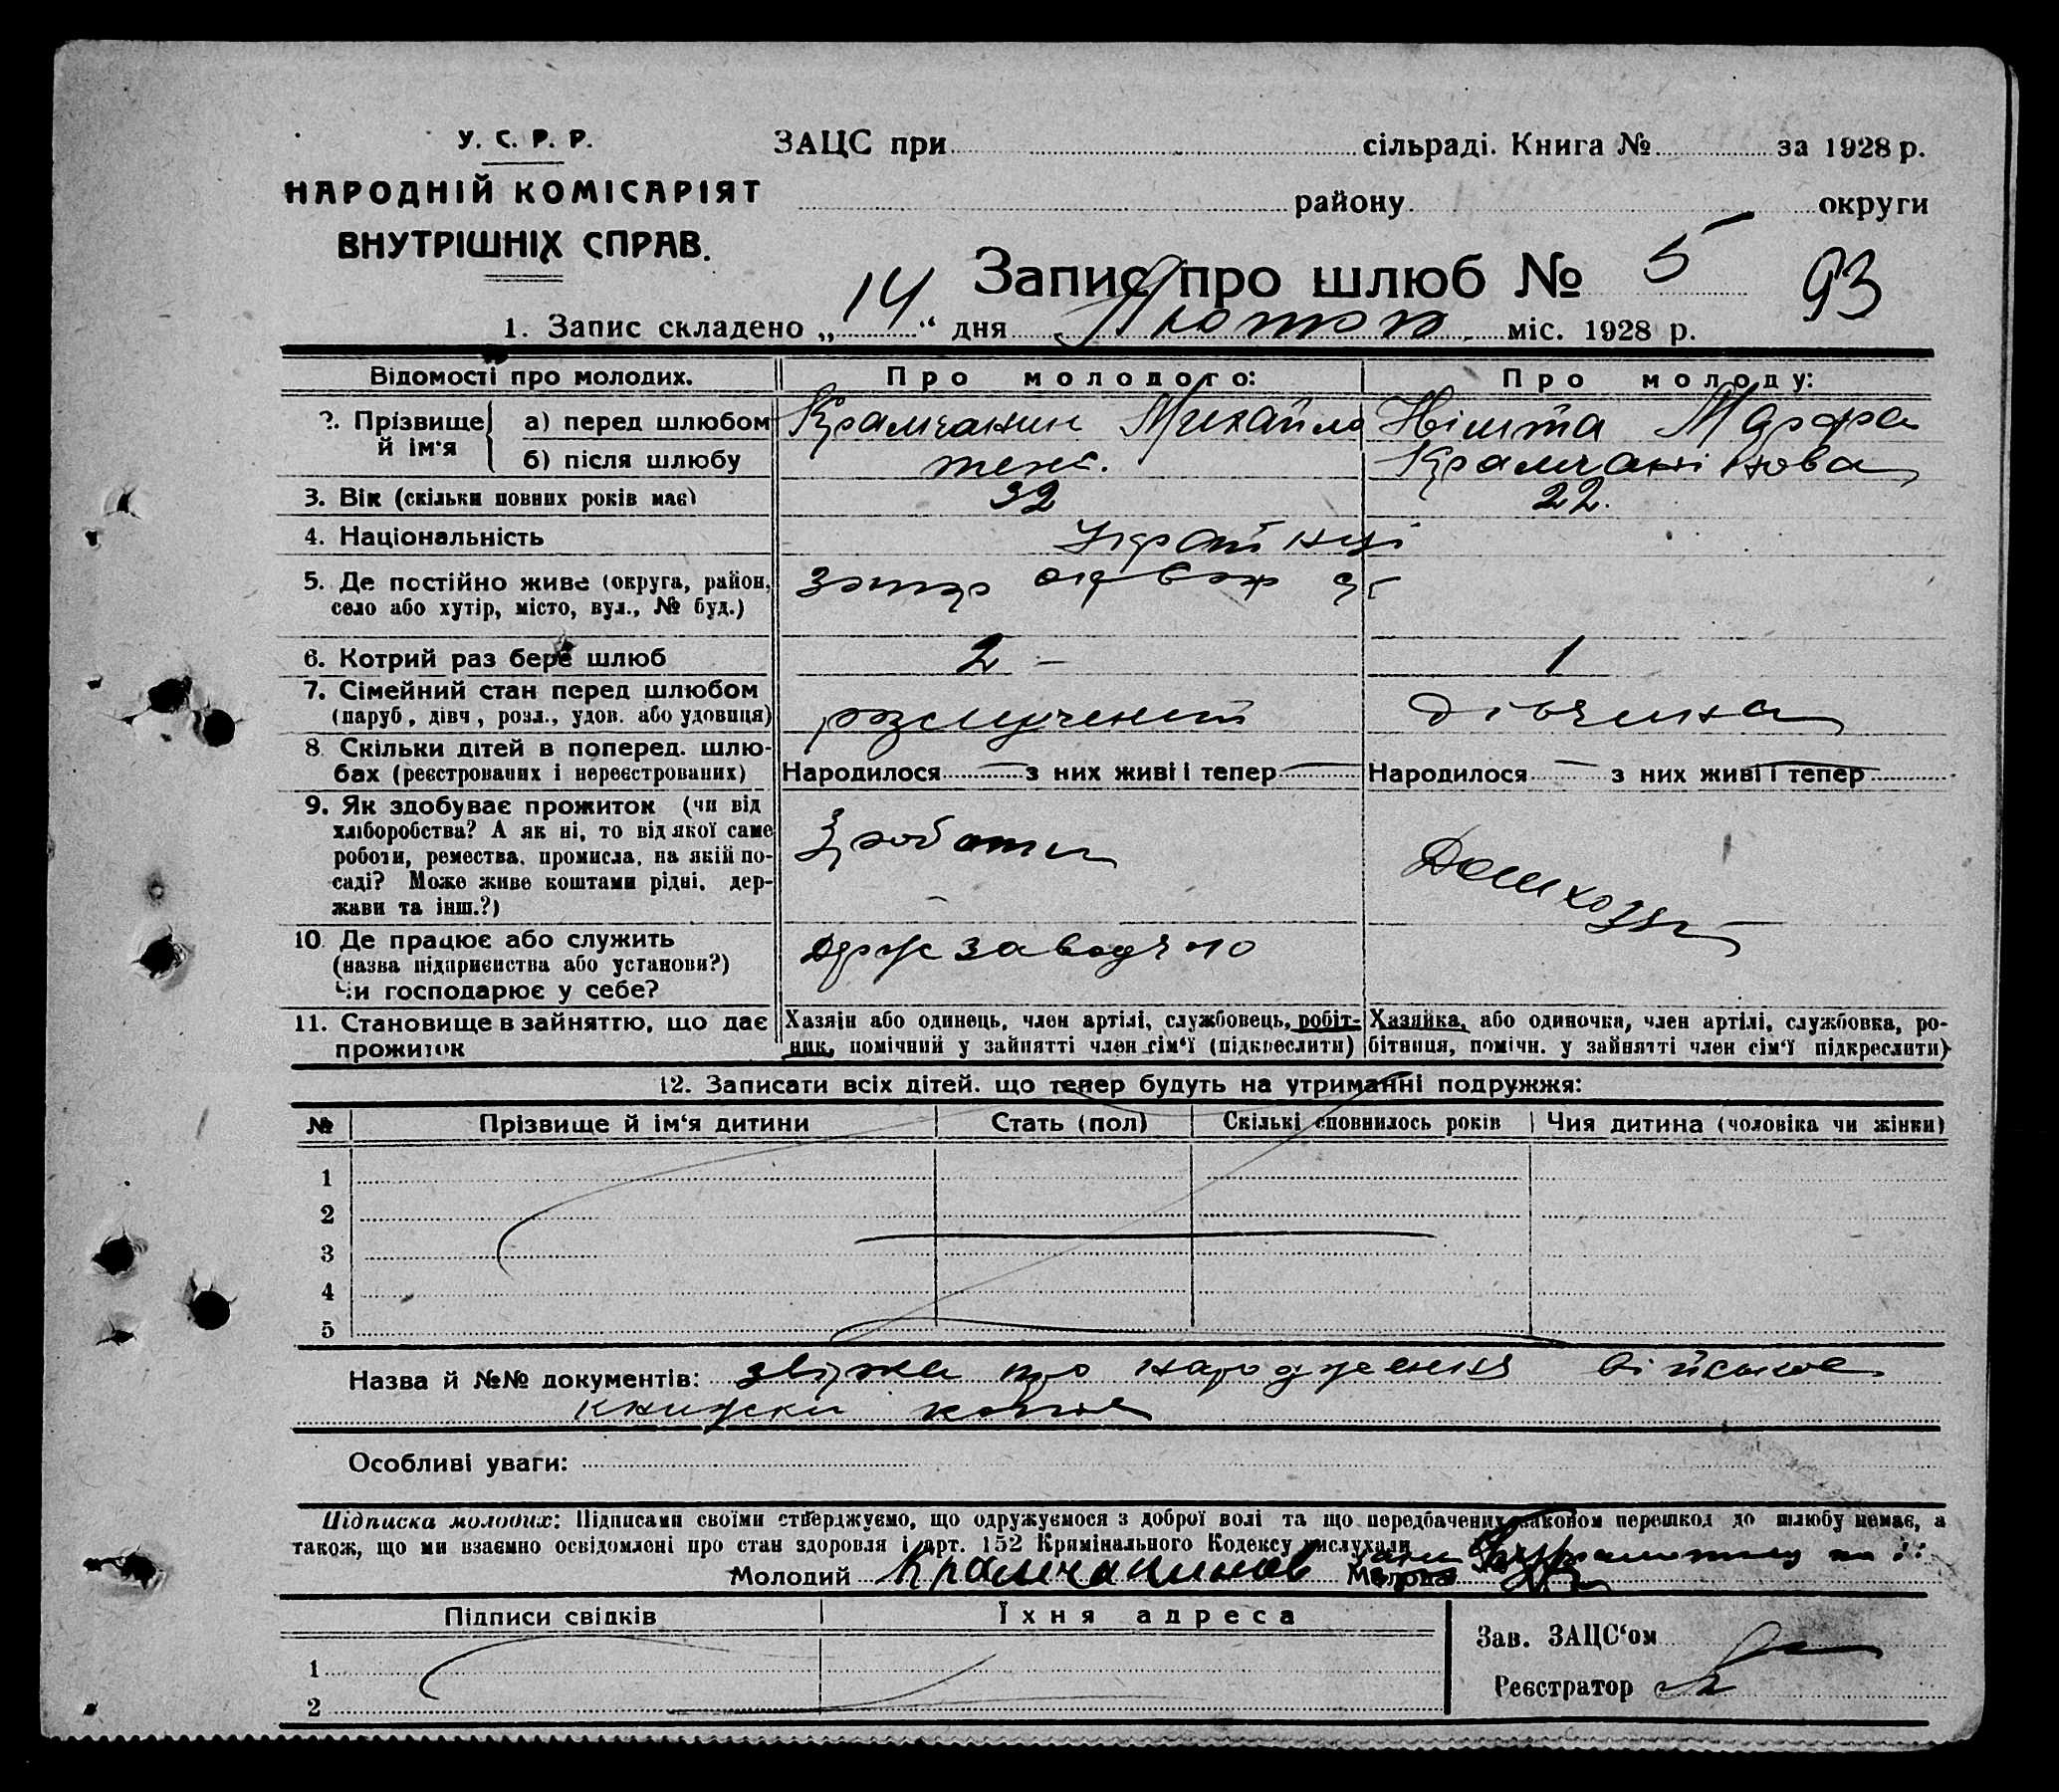 У. С. Р. Р.
НАРОДНІЙ КОМІСАРІЯТ
ВНУТРІШНІХ СПРАВ.
ЗАЦС при сільраді. Книга № за 1928 р.
району округи
Запис про шлюб № 5 93
1. Запис складено „14“ дня Лютого міс. 1928 р.
Відомості про молодих. Про молодого: Про молоду:
2. Прізвище й ім‘я
а) перед шлюбом Крамчанин Михайло Нішта Марфа
б) після шлюбу теж. Крамчанінова
3. Вік (скільки повних років має) 32 22.
4. Національність Українці
5. Де постійно живе (округа, район,
село або хутір, місто, вул., № буд.)
6. Котрий раз бере шлюб 2 – 1
7. Сімейний стан перед шлюбом
(паруб, дівч, розл., удов. або удовиця) розлучений дівчина
8. Скільки дітей в поперед. шлю-
бах (реєстрованих і нереєстрованих) Народилося — з них живі і тепер — Народилося — з них живі і тепер —
9. Як здобуває прожиток (чи від
хліборобства? А як ні, то від якої саме
роботи, ремества, промисла, на якій по-
саді? Може живе коштами рідні, дер-
жави та інш.?)
З роботи Домхозяй
10. Де працює або служить
(назва підприємства або установи?)
Чи господарює у себе?
держзавод ч 10
11. Становище в зайняттю, що дає
прожиток
Хазяїн або одинець, член артілі, службовець, робіт-
ник, помічний у зайнятті член сім‘ї (підкреслити)
Хазяйка, або одиночка, член артілі, службовка, ро-
бітниця, помічн. у зайнятті член сім‘ї підкреслити)
12. Записати всіх дітей. що тепер будуть на утриманні подружжя:
№ Прізвище й ім‘я дитини Стать (пол) Скількі сповнилось років Чия дитина (чоловіка чи жінки)
1
2
3
4
5
Назва й №№ документів: звірка про народження військов
книжки копія
Особливі уваги:
Підписка молодих: Підписами своїми стверджуємо, що одружуємося з доброї волі та що передбачених законом перешкод до шлюбу немає, а
також, що ми взаємно освідомлені про стан здоровля і арт. 152 Кримінального Кодексу вислухали
Молодий Крамчанинов Молода
Підписи свідків Їхня адреса
1
2
Зав. ЗАЦС‘ом
Реєстратор